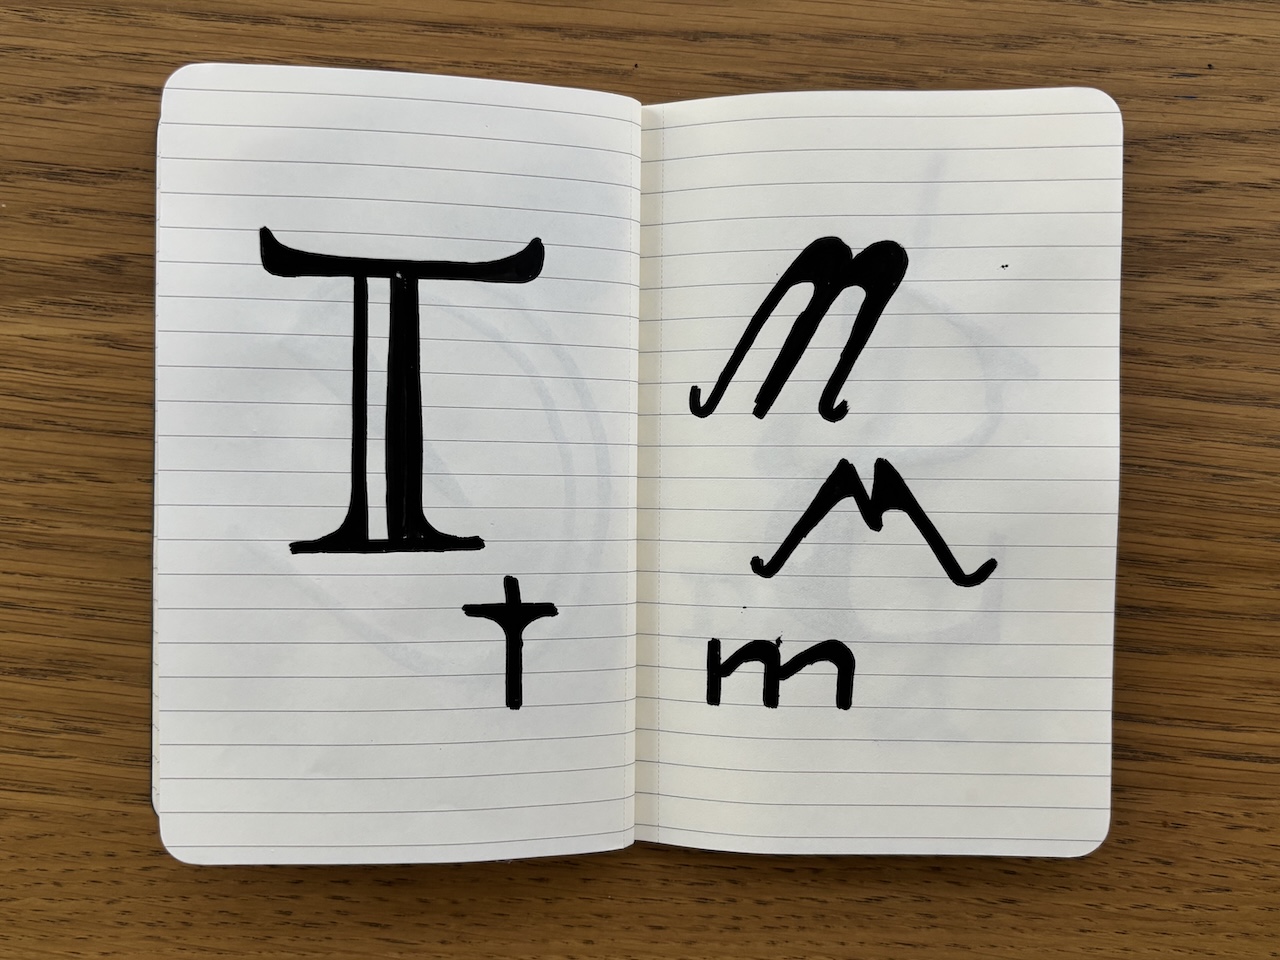 T
t
M
M
m